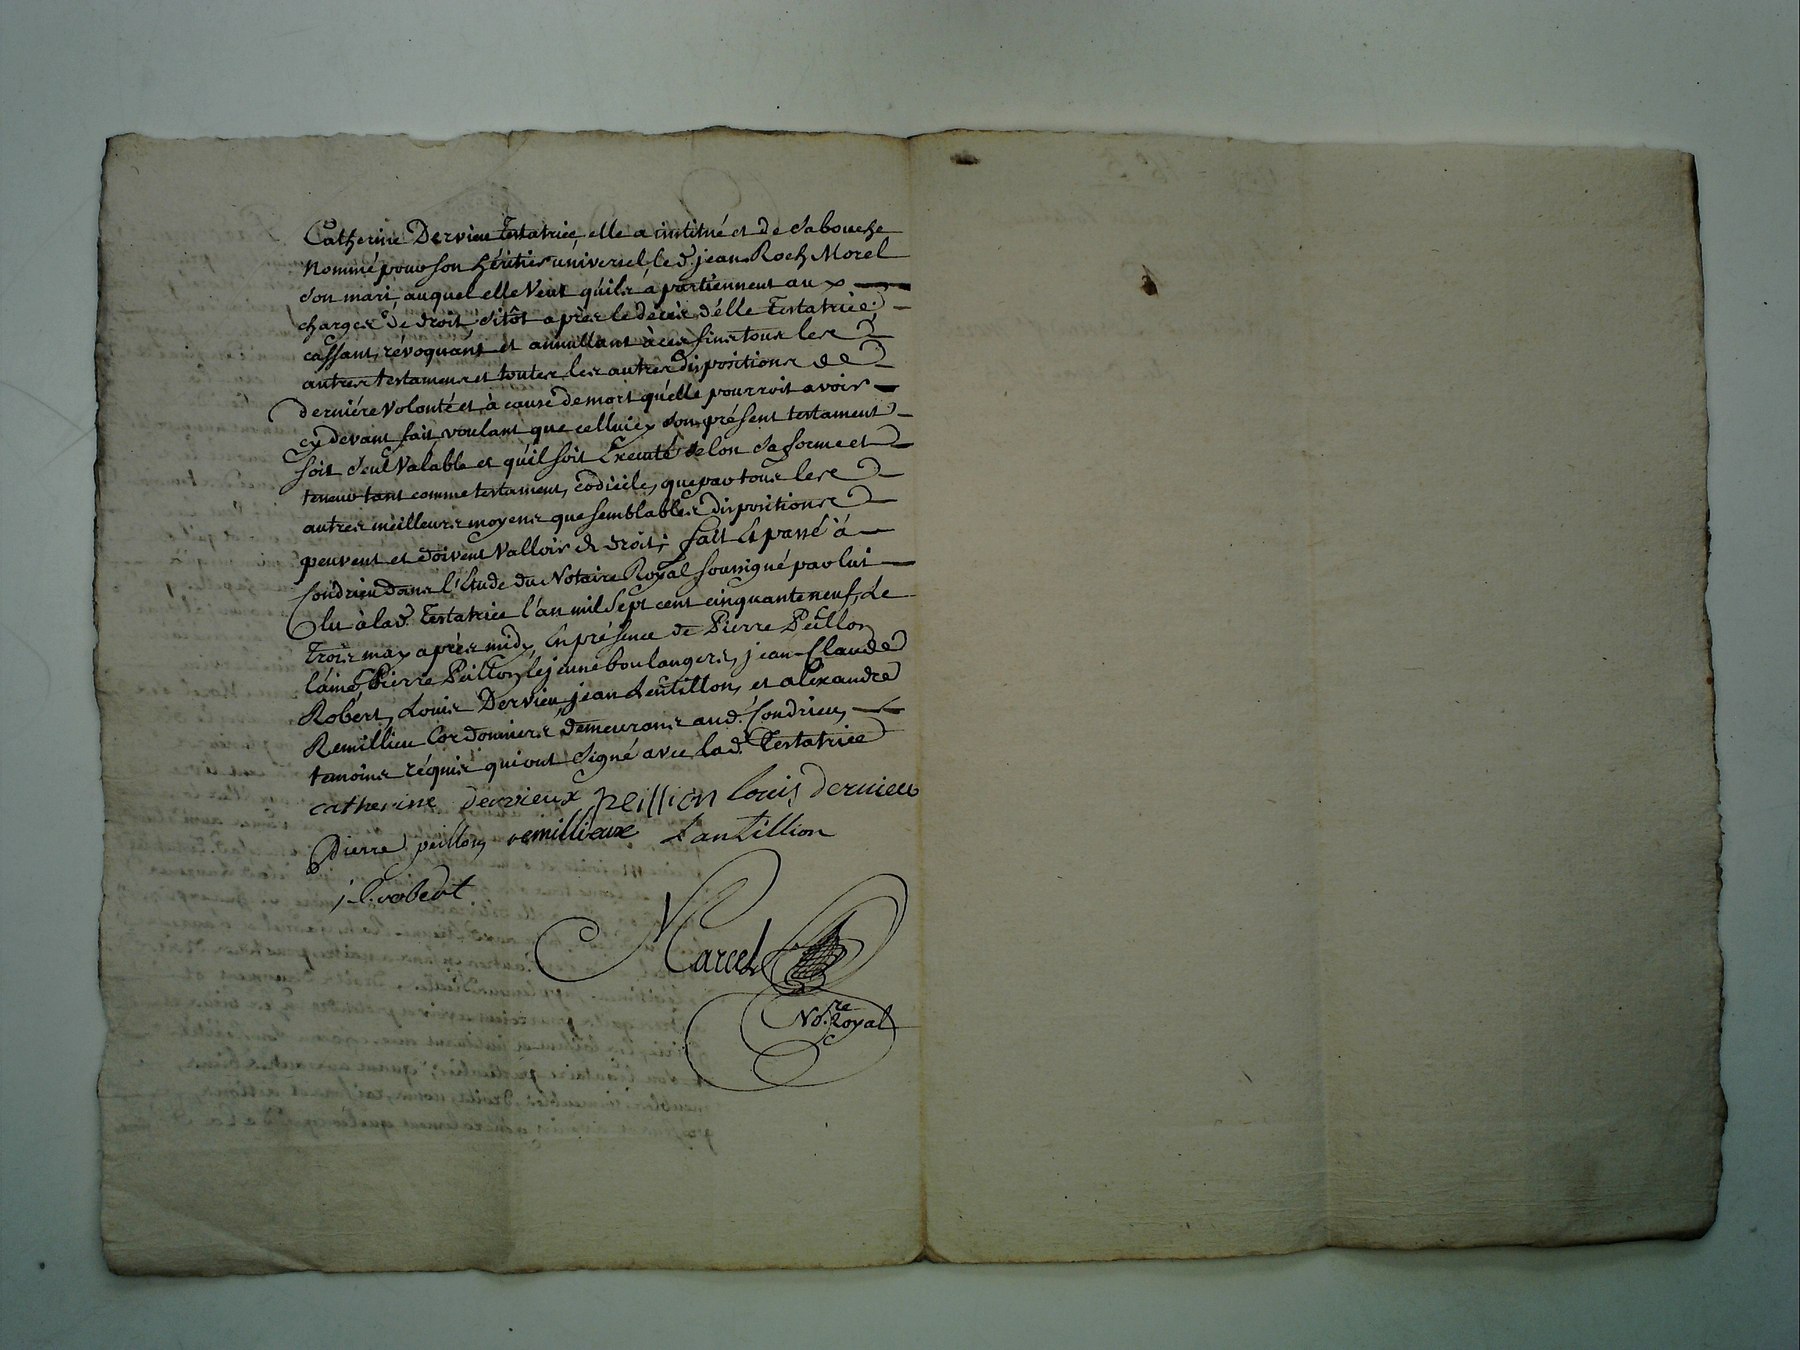 Catherine Dervieu Testatrice, elle a institué et de sa bouche
nommé pour son héritier universel, le d. jean Roch Morel
son mari, auquel elle veut quils apartiennent aux
charges de droit, sitôt après le décès, d'élle Testatrice,
cassant, révoquant et annullant à ces fins tous les
autres testamens et toutes les autres dispositions de
derniére volonté et à cause de mort qu'élle pourroit avoir
cy devant fait, voulant que celluicy son présent testament
soit seul valable et qu'il soit Exécuté selon sa forme et
teneur tant comme testament, codicile, que par tous les
autres meilleurs moyens que semblables dispositions
peuvent et doivent valloir de droit; fait et passé à
Condrieu dans l'Etude du Notaire Royal soussigné par lui
lu à lad. Testatrice l'an mil sept cent cinquante neuf, le
trois may après midy, En présence de Pierre Peillon
l'ainé, Pierre Peillon le jeune boulangers, jean Claude
Robert, Louis Dervieu, jean Lentillon, et alexandre
Remillieu Cordonniers demeurans aud. Condrieu,
temoins réquis qui ont signé avec lad. Testatrice
catherine dervieux peillion louis dervieu
pierre peillon remillieux Lantillion
j C. robert
Marcel
No.re Royal